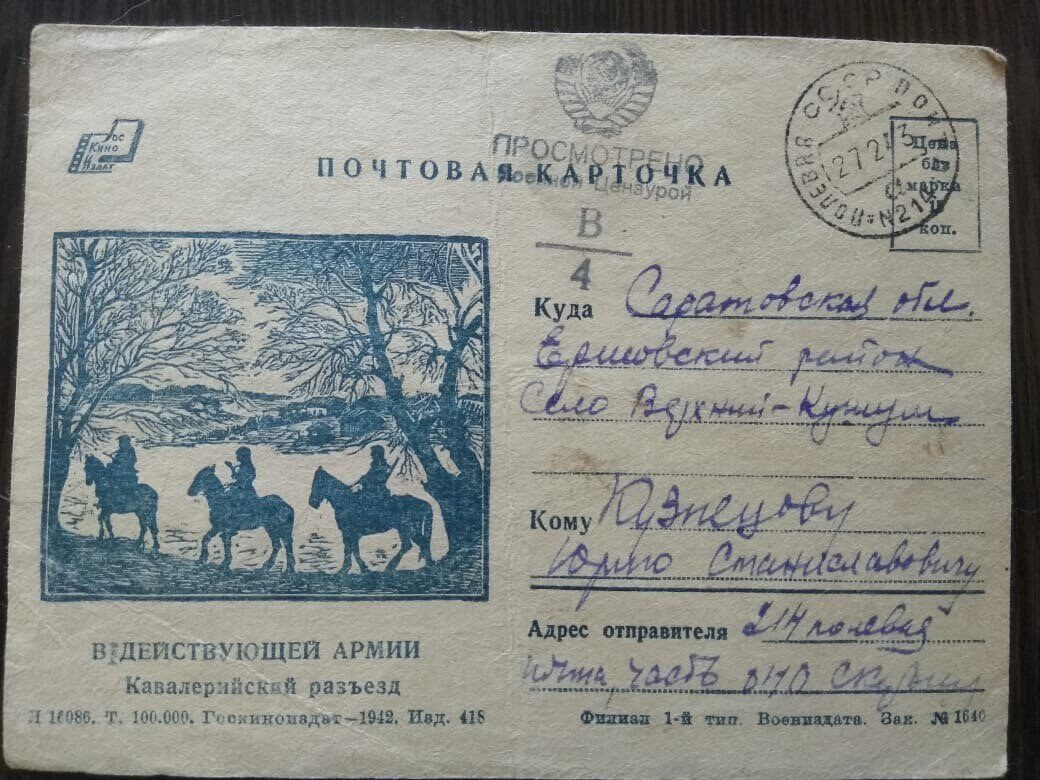 Гос
Кино
Издат
ПОЧТОВАЯ КАРТОЧКА
ПРОСМОТРЕНО
Военной Цензурой
В
4
ПОЛЕВАЯ СССР ПОЧТА
27 2 3
N214
Цена
без
марки
коп.
Куда Саратовская обл.
Ершовский район
Село Верхний-Кушум
Кому Кузнецову
Юрию Станиславовичу
Адрес отправителя 214 полевая
почта, часть 070
В ДЕЙСТВУЮЩЕЙ АРМИИ
Кавалерийский разъезд
Л 16086. Т. 100.000. Госкиноиздат—1942. Изд. 418
Филиал 1-й тип. Воениздата. Зак. № 1640